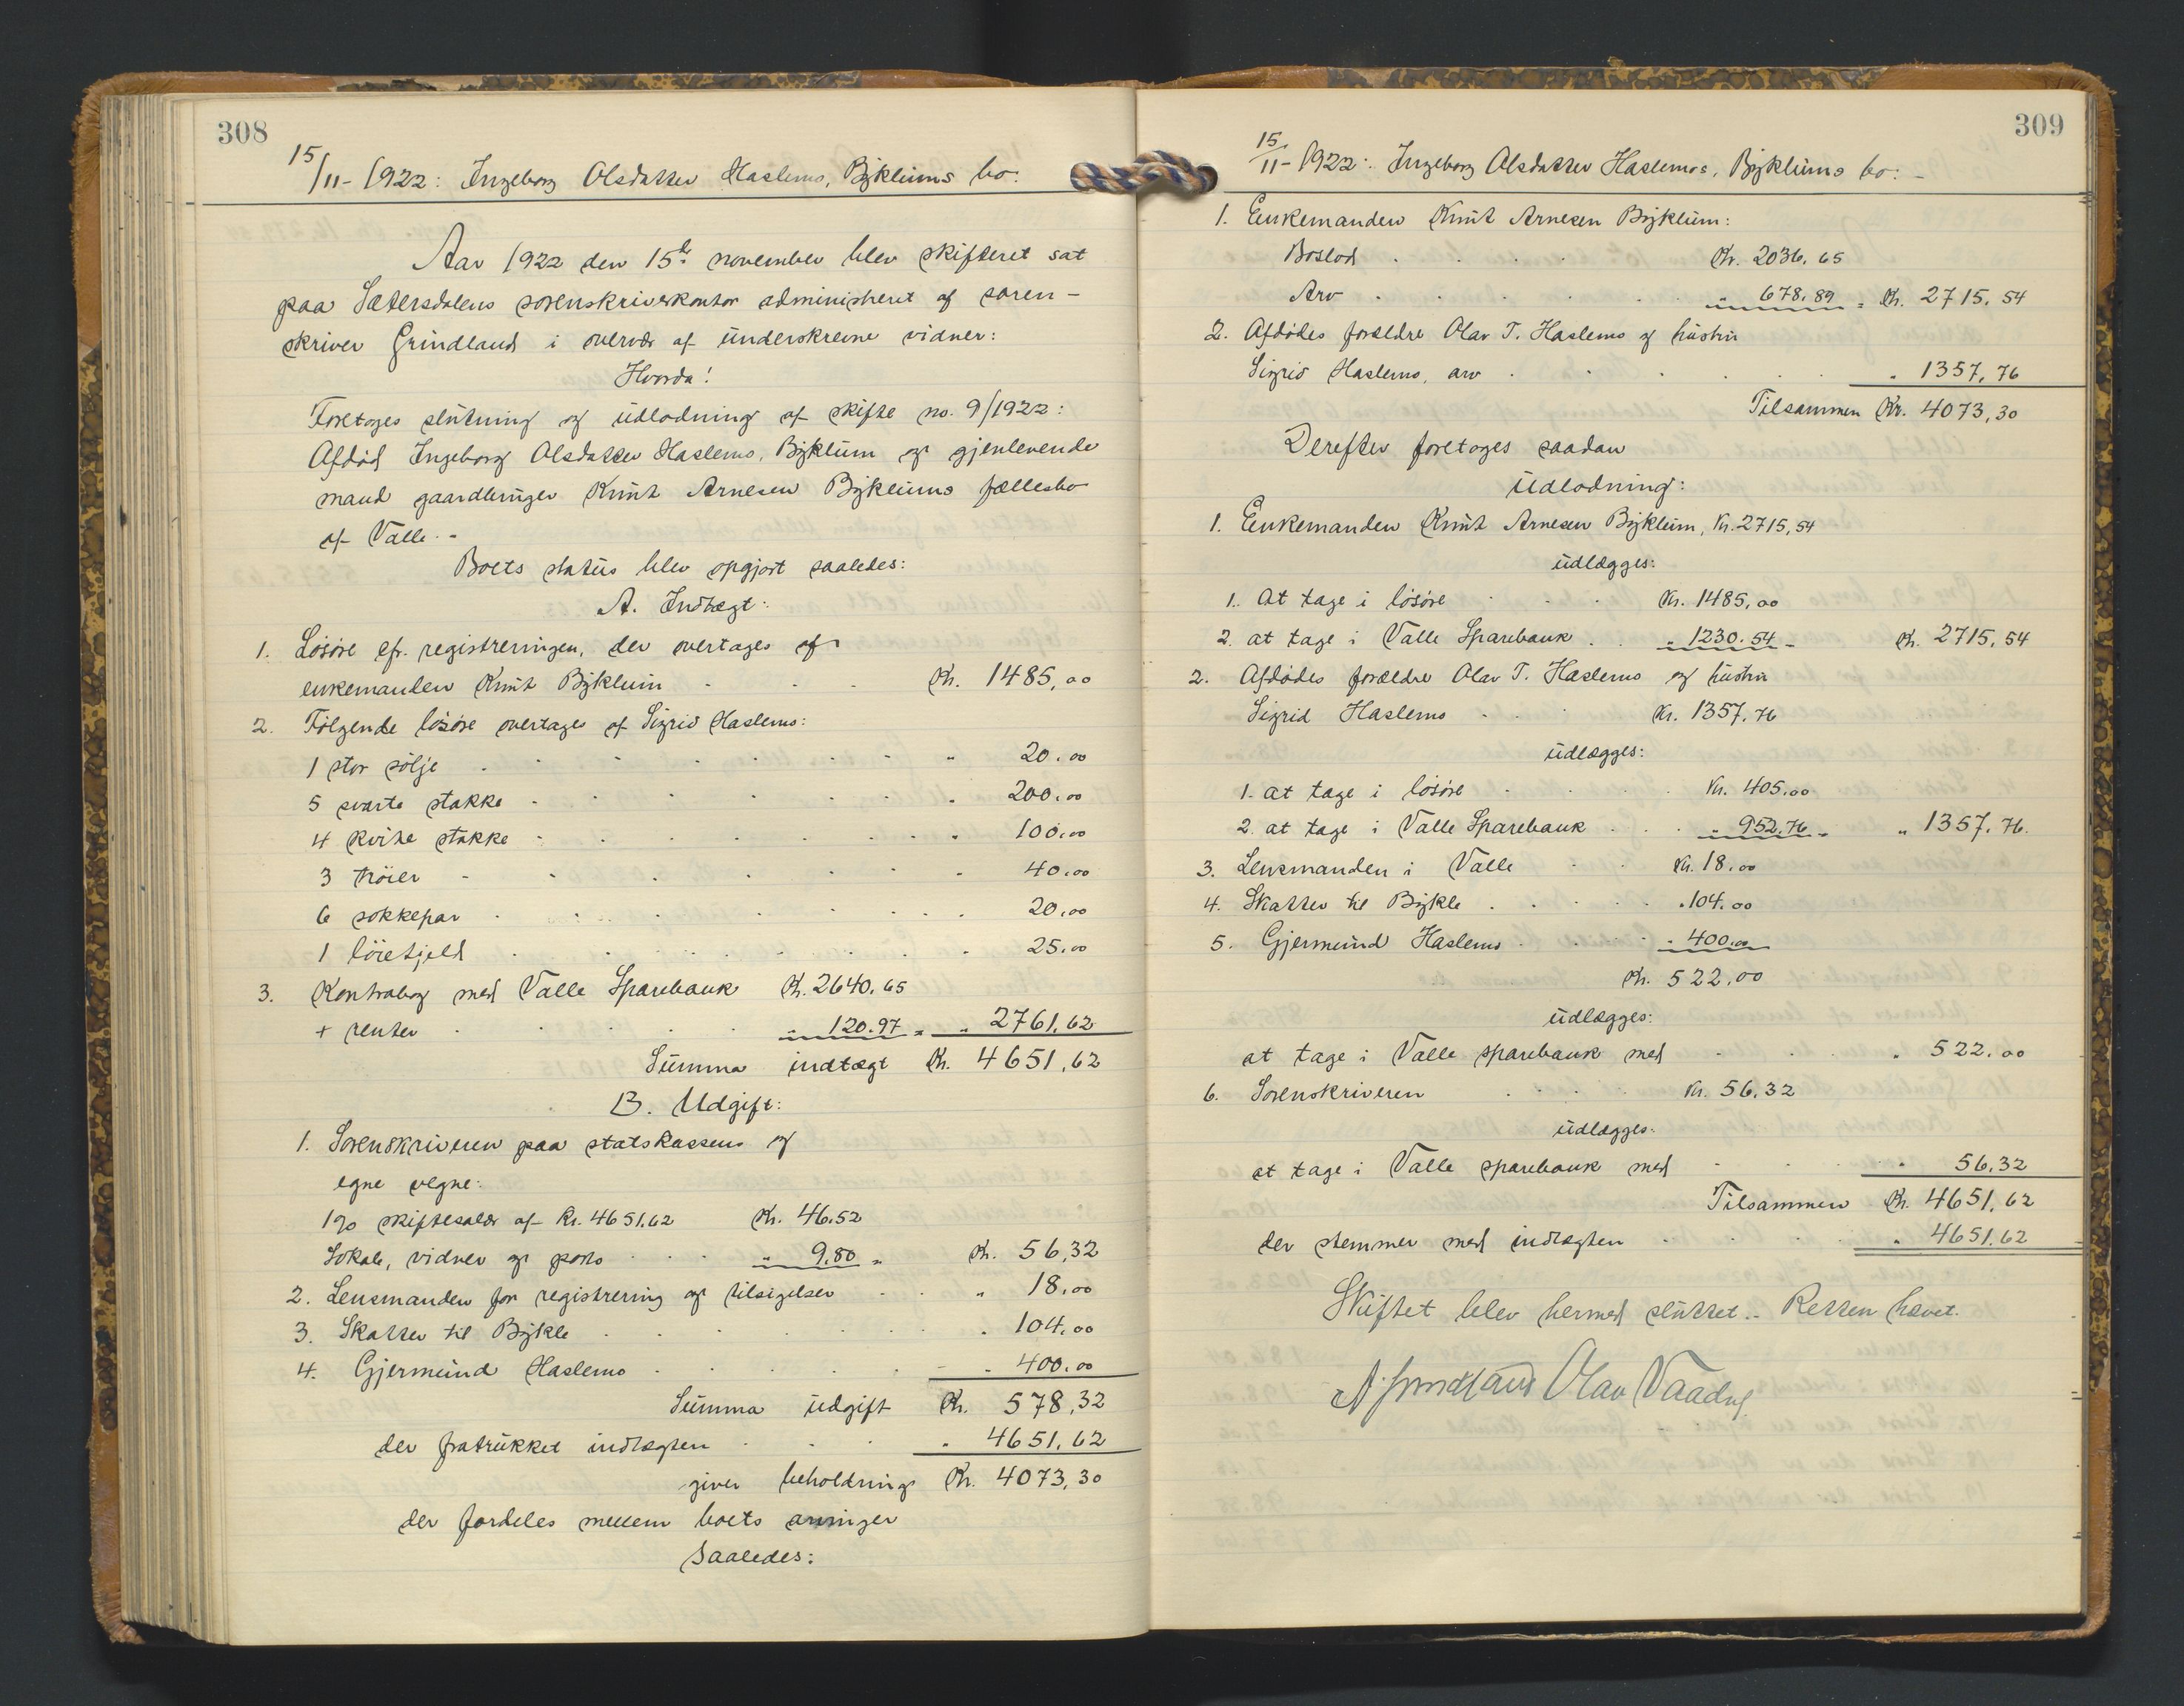 308
15/11-1922: Ingeborg Olsdatter Haslemo, Bjykleims bo:
Aar 1922 den 15de november blev skifteret sat
paa Sætersdalens sorenskriverkontor administreret af soren-
skriver Grindland i overvær af underskrevne vidner:
Hvorda!
Foretoges slutning og udlodning af skifte no. 9/1922:
Afdød Ingeborg Olsdatter Haslemo, Bykleim og gjenlevende
mand gaardbruger Knut Arnesen Bykleims fællesbo
af Valle.-
Boets status blev opgjort saaledes:
A. Indtægt:
1. Løsøre efr. registreringen, der overtages af
enkemanden Knut Bykleim . . . Kr. 1485,00
2. Følgende løsøre overtages af Sigrid Haslemo:
1 stor sølje . . . . . . . " 20.00
5 svarte stakke . . . . . . . " 200.00
4 kvite stakke . . . . . . . " 100.00
3 trøier . . . . . . " 40.00
6 sokkepar . . . . . . . " 20.00
1 löietjeld . . . . . . . " 25.00
3. Kontrabog med Valle Sparebank Kr. 2640.65
+ renter . . . . . " 120.97 = " 2761,62
Summa indtægt Kr. 4651,62
B. Udgift:
1. Sorenskriveren paa statskassens og
egne vegne:
1% skiftesalær af Kr. 4651.62 Kr. 46.52
Lokale, vidner og porto . . . " 9.80 = Kr. 56,32
2. Lensmanden for registrering og tilsigelser . . " 18,00
3. Skatter til Bykle . . . . . . " 104.00
4. Gjermund Haslemo . . . . . " 400.00
Summa udgift Kr. 578,32
der fratrukket indtægten . . . " 4651,62
giver beholdning Kr. 4073,30
der fordeles mellem boets arvinger
saaledes:
309
15/11-1922: Ingeborg Olsdatter Haslemos, Bykleims bo: -
1. Enkemanden Knut Arnesen Bykleim:
Boslod . . . . . Kr. 2036.65
Arv . . . . . . " 678.89 = Kr. 2715.54
2. Afdødes forældre Olav T. Haslemo og hustru
Sigrid Haslemo, arv . . . . . " 1357,76
Tilsammen Kr. 4073,30
Derefter foretoges saadan
Udlodning:
1. Enkemanden Knut Arnesen Bykleim, Kr. 2715,54
udlægges:
1. At tage i løsøre . . . Kr. 1485,00
2. at tage i Valle Sparebank . . " 1230.54 - Kr. 2715,54
2. Afdødes forældre Olav T. Haslemo og hustru
Sigrid Haslemo . . . Kr. 1357.76
udlægges:
1. at tage i løsøre . . . . Kr. 405.00
2. at tage i Valle Sparebank . . . " 952,76 = " 1357.76.
3. Lensmanden i Valle . . Kr. 18.00
4. Skatter til Bykle . . . . . " 104.00
5. Gjermund Haslemo . . . . " 400.00
Kr. 522,00
udlægges:
at tage i Valle sparebank med . . . " 522.00
6. Sorenskriveren . . . . Kr. 56,32
udlægges:
at tage i Valle sparebank med . . . " 56.32
Tilsammen Kr. 4651,62
der stemmer med indtægten . . . . " 4651.62
Skiftet blev hermed sluttet.- Retten hævet.
Grindland Olav Vaadny